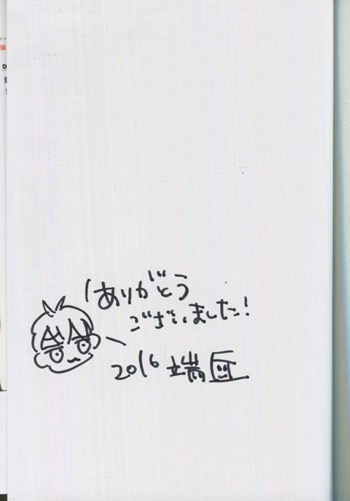 ありがとう
ございました!
2016 端